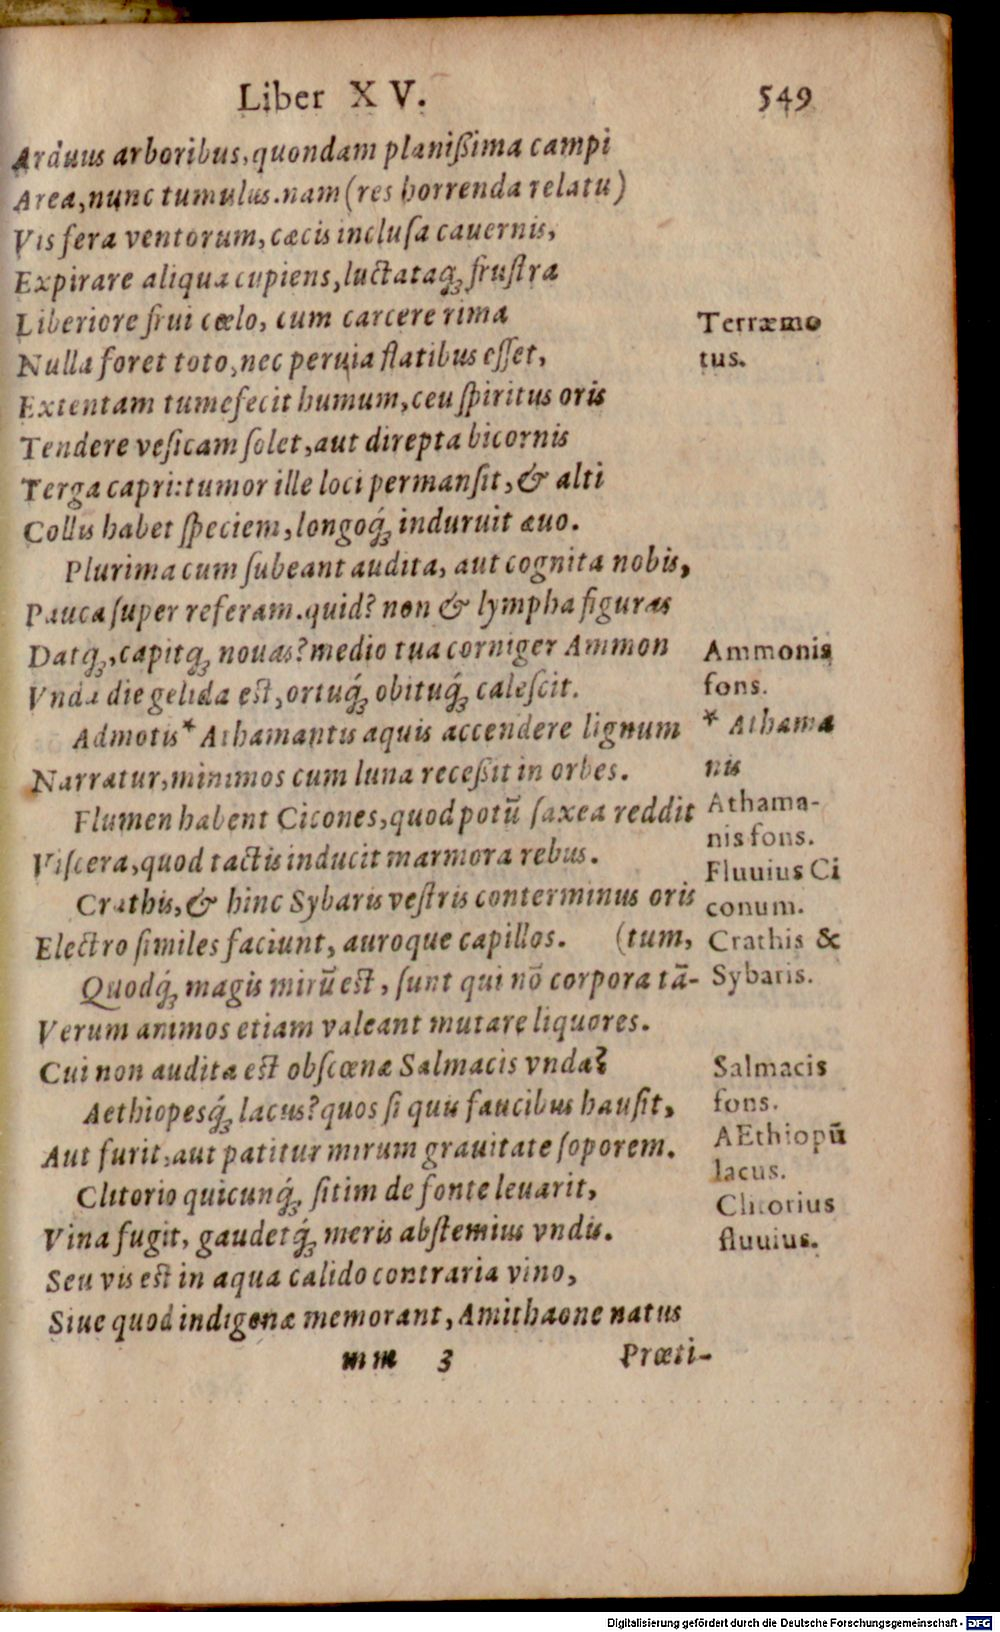 Liber XV. 549
Arduus arboribus, quondam planißima campi
Area, nunc tumulus. nam (res horrenda relatu)
Vis fera ventorum, cæcis incluſa cauernis,
Expirare aliqua cupiens, luctataq́ꝫ fruſtra
Liberiore frui cœlo, cum carcere rima
Nulla foret toto, nec peruia flatibus eſſet,
Extentam tumefecit humum, ceu ſpiritus oris
Tendere veſicam ſolet, aut direpta bicornis
Terga capri: tumor ille loci permanſit, & alti
Collis habet ſpeciem, longoq́ꝫ induruit æuo.
Plurima cum ſubeant audita, aut cognita nobis,
Pauca ſuper referam. quid? non & lympha figuras
Datq́ꝫ, capitq́ꝫ nouas? medio tua corniger Ammon
Vnda die gelida eſt, ortuq́ꝫ obituq́ꝫ caleſcit.
Admotis * Athamantis aquis accendere lignum
Narratur, minimos cum luna receßit in orbes.
Flumen habent Cicones, quod potū ſaxea reddit
Viſcera, quod tactis inducit marmora rebus.
Crathis, & hinc Sybaris veſtris conterminus oris
Electro ſimiles faciunt, auroque capillos. (tum,
Quodq́ꝫ magis mirū eſt, ſunt qui nō corpora tā-
Verum animos etiam valeant mutare liquores.
Cui non audita eſt obſcœnæ Salmacis vnda?
Aethiopesq́ꝫ lacus? quos ſi quis faucibus hauſit,
Aut furit, aut patitur mirum grauitate ſoporem.
Clitorio quicunq́ꝫ ſitim de fonte leuarit,
Vina fugit, gaudetq́ꝫ meris abſtemius vndis.
Seu vis eſt in aqua calido contraria vino,
Siue quod indigenæ memorant, Amithaone natus
mm 3 Præti-
Terræmo
tus.
Ammonis
fons.
* Athama
nis
Athama-
nis fons.
Fluuius Ci
conum.
Crathis &
Sybaris.
Salmacis
fons.
AEthiopū
lacus.
Clitorius
fluuius.
Digitalisierung gefördert durch die Deutsche Forschungsgemeinschaft - DFG